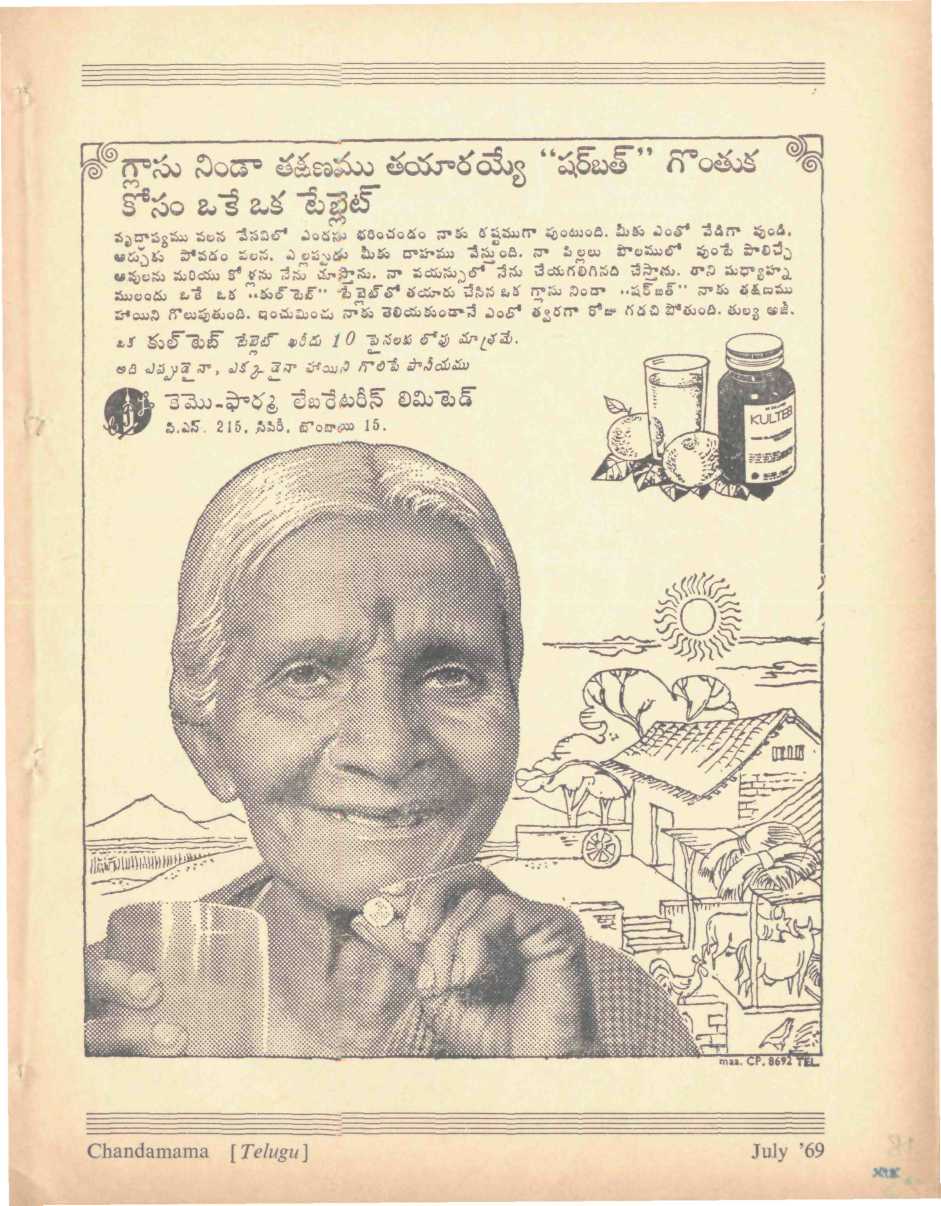 గ్లాసు నిండా తక్షణము తయారయ్యే “షర్‌బత్” గొంతుక
కోసం ఒకే ఒక టేబ్లెట్
వృద్ధాప్యము వలన వేసవిలో ఎండను భరించడం నాకు కష్టముగా వుంటుంది. మీకు ఎంతో వేడిగా వుండి,
ఆర్చుకు పోవడం వలన, ఎల్లప్పుడు మీకు దాహము వేస్తుంది. నా పిల్లలు పొలములో వుంటే పాలిచ్చే
ఆవులను మరియు కోళ్లను నేను చూస్తాను. నా వయస్సులో నేను చేయగలిగినది చేస్తాను. కాని మధ్యాహ్న
ములందు ఒకే ఒక “కుల్‌టెబ్” టేబ్లెట్‌తో తయారు చేసిన ఒక గ్లాసు నిండా “షర్‌బత్” నాకు తక్షణము
హాయిని గొలుపుతుంది. ఇంచుమించు నాకు తెలియకుండానే ఎంతో త్వరగా రోజు గడచి పోతుంది. తుల్య అజీ.
ఒక కుల్‌టెబ్ టేబ్లెట్ ఖరీదు 10 పైసలకు లోపు మాత్రమే.
అది ఎప్పుడైనా, ఎక్కడైనా హాయిని గొలిపే పానీయము
కెమొ-ఫార్మ లేబరేటరీస్ లిమిటెడ్
పి.ఎన్. 215, సిపిరీ, బొంబాయి 15.
KULTEB
maa. CP. 8692 TEL
Chandamama [Telugu] July '69